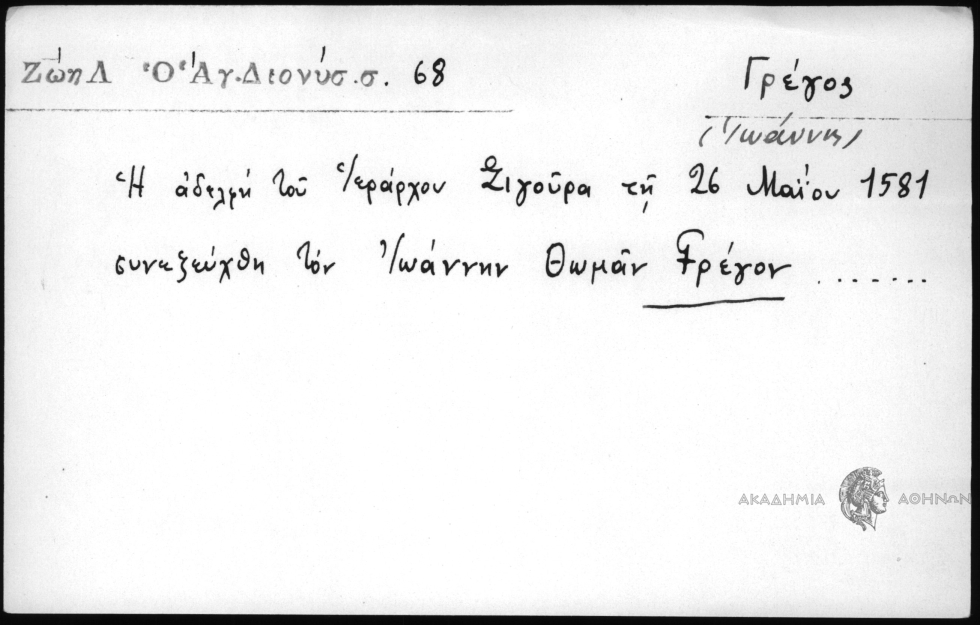 Ζώη Λ Ὁ Ἁγ. Διονύσ. σ. 68
Γρέγος
(Ἰωάννης)
Ἡ ἀδελφή τοῦ Ἱεράρχου Σιγούρα τῇ 26 Μαΐου 1581
συνεζεύχθη τόν Ἰωάννην Θωμᾶν Γρέγον .......
ΑΚΑΔΗΜΙΑ ΑΘΗΝΩΝ